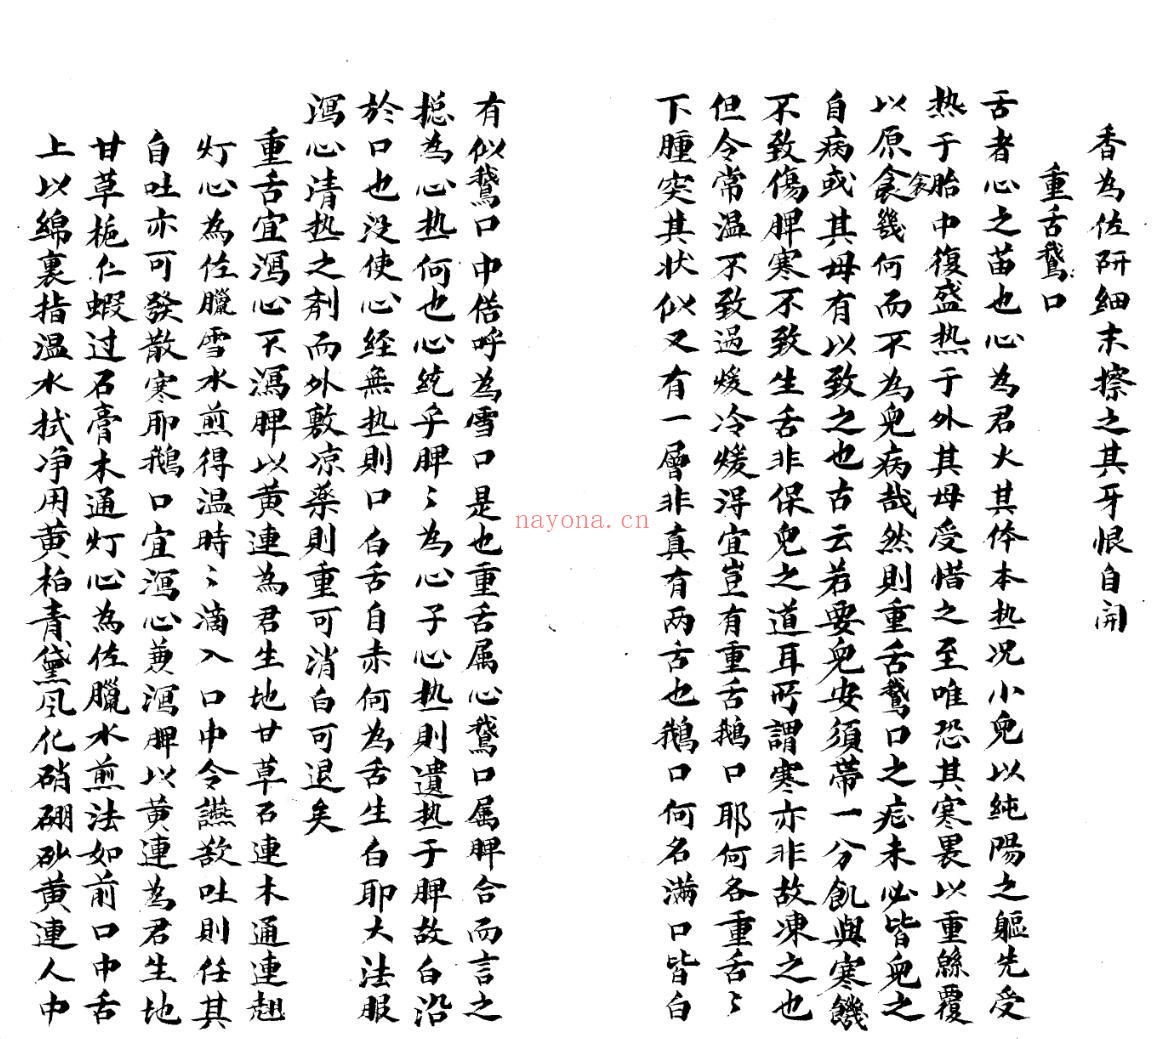 香為佐研細末擦之其牙恨自開
重舌鵞口
舌者心之苗也心為君火其体本热况小兒以純陽之軀先受
热于胎中復盛热于外其母受惜之至唯恐其寒畏以重緜覆
以原衾幾何而不為兒病哉然則重舌鵞口之症未必皆兒之
衾
自病或其母有以致之也古云若要兒安須帶一分飢與寒饑
不致傷脾寒不致生舌非保兒之道耳所謂寒亦非故凍之也
但令常温不致過煖冷煖得宜豈有重舌鵝口耶何各重舌〻
下腫突其状似又有一層非真有两舌也鵝口何名滿口皆白
有似鵞口中俗呼為雪口是也重舌属心鵞口属脾合而言之
揔為心热何也心統乎脾〻為心子心热則遺热于脾故白沿
於口也没使心经無热則口白舌自赤何為舌生白耶大法服
瀉心清热之剤而外敷凉藥則重可消白可退矣
重舌宜瀉心不瀉脾以黄連為君生地甘草石連木通連翹
灯心為佐臘雪水煎得温時〻滴入口中令讌欲吐則任其
自吐亦可發散寒耶鵝口宜瀉心兼瀉脾以黄連為君生地
甘草梔仁蝦过石膏木通灯心為佐臘水煎法如前口中舌
上以綿裏指温水拭净用黄柏青黛风化硝硼砂黄連人中
nayona.cn